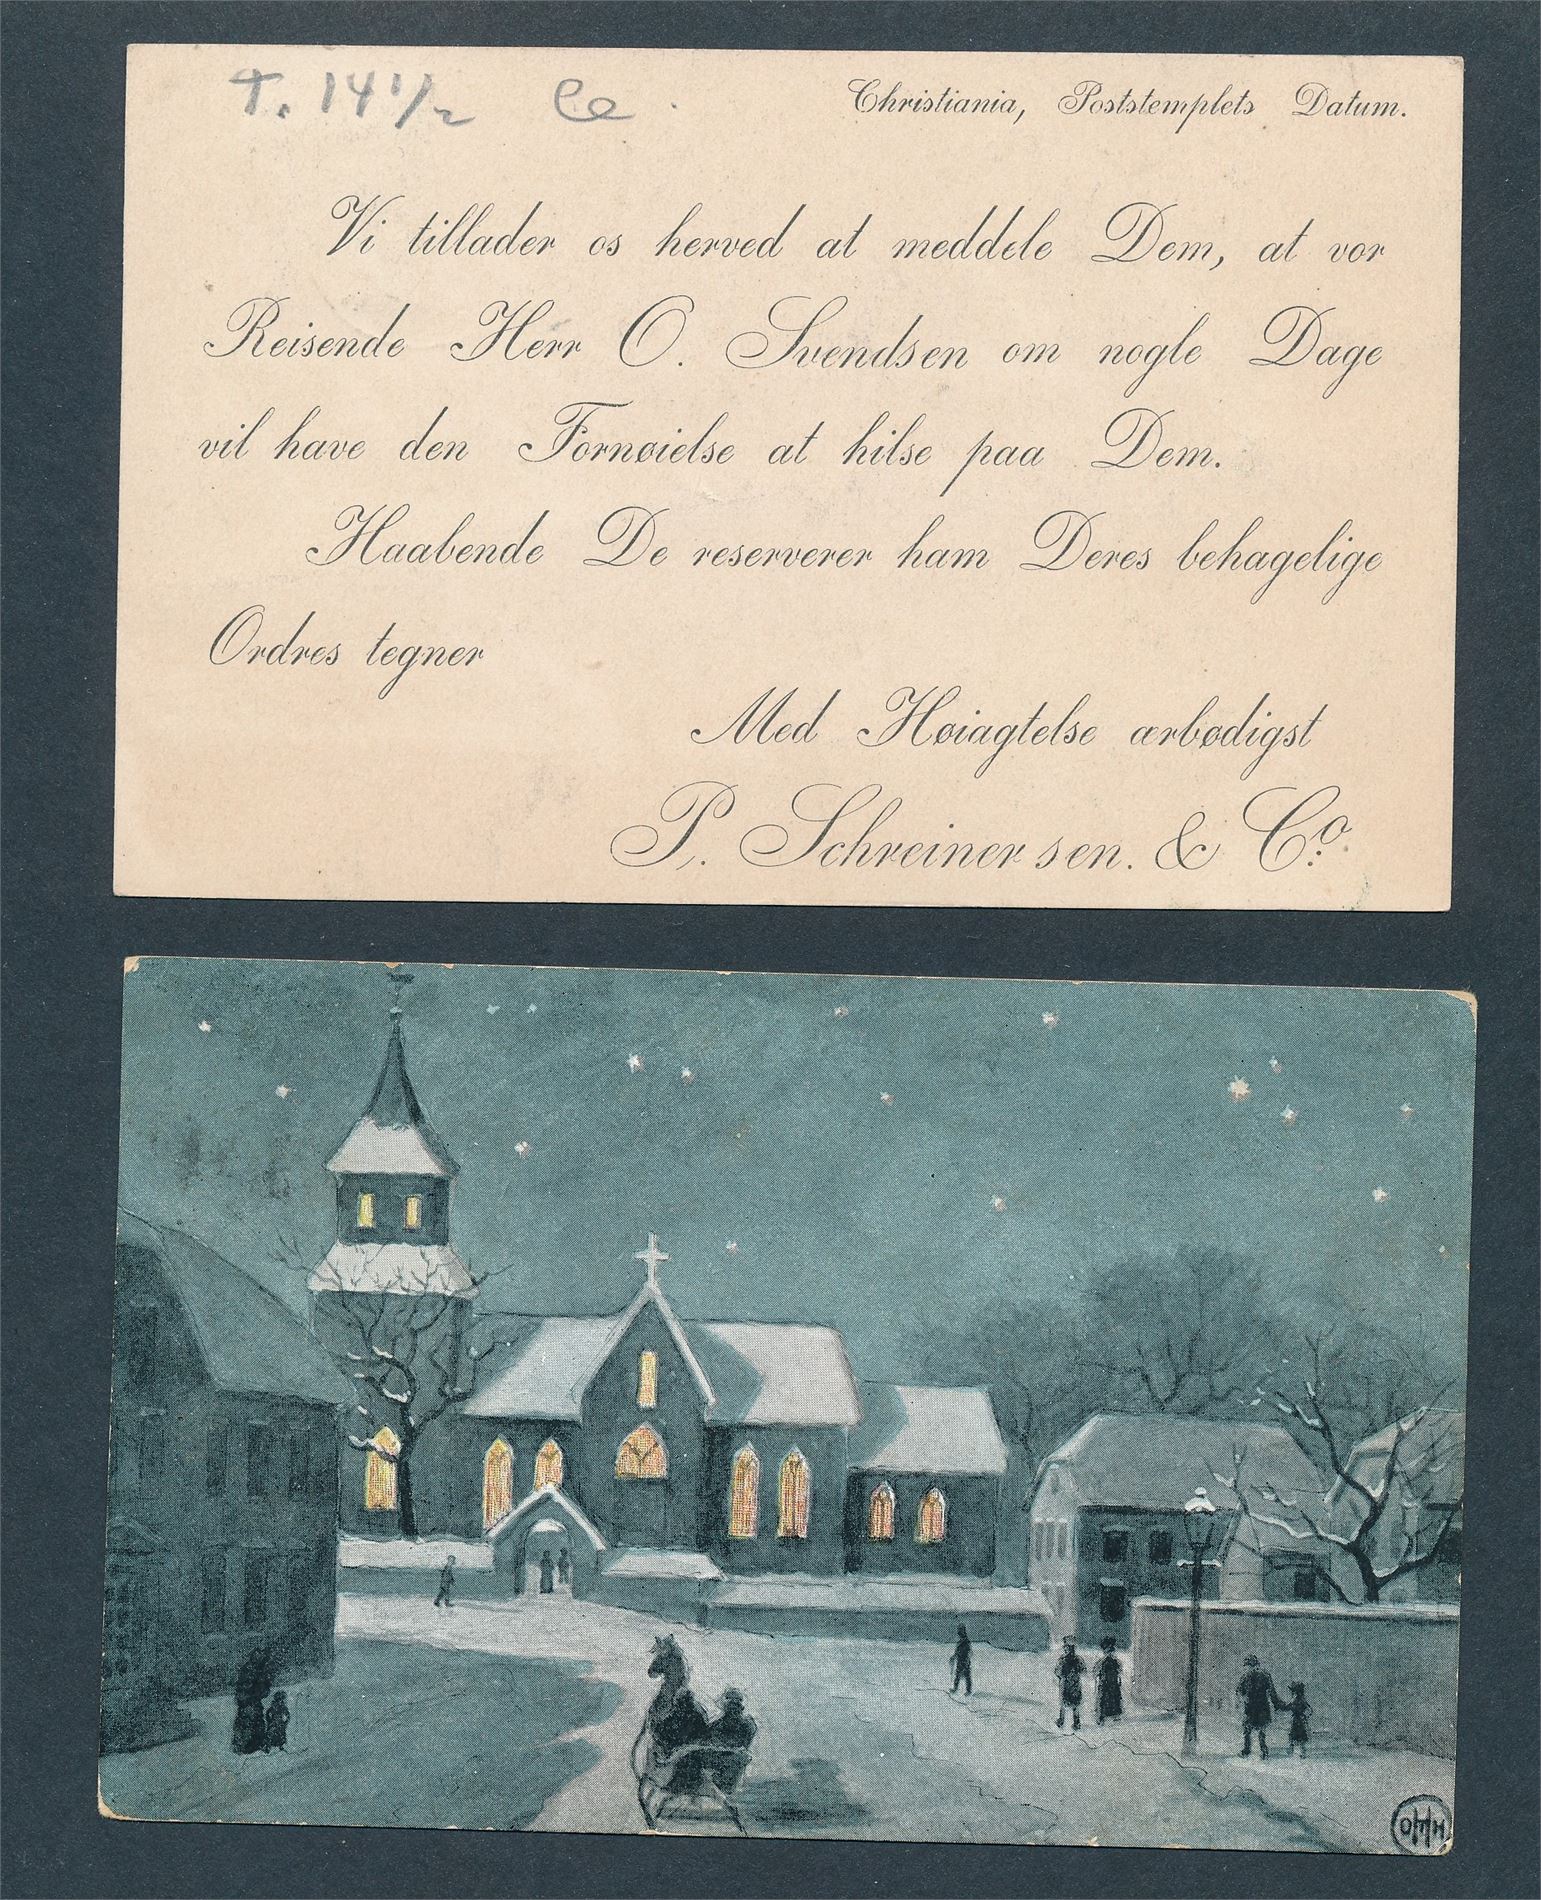 T. 14 1/2
Christiania, Poststemplets Datum.
Vi tillader os herved at meddele Dem, at vor
Reisende Herr O. Svendsen om nogle Dage
vil have den Fornøielse at hilse paa Dem.
Haabende De reserverer ham Deres behagelige
Ordres tegner
Med Høiagtelse ærbødigst
P. Schreiner sen. & Co.